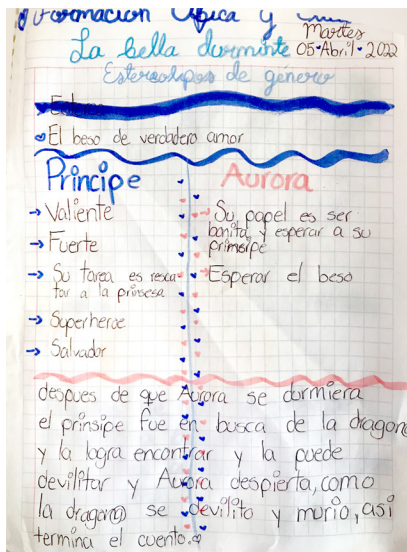 Formación Cívica y
Martes
La bella durminte 05·Abril·2022
Estereotipos de genero
El beso de verdadero amor
Principe
→ Valiente
→ Fuerte
→ Su tarea es resca-
tar a la prinsesa
→ Superheroe
→ Salvador
Aurora
→ Su papel es ser
bonita y esperar a su
prinsipe
→ Esperar el beso
despues de que Aurora se durmiera
el prinsipe fue en busca de la dragona
y la logra encontrar y la puede
devilitar y Aurora despierta, como
la dragon@ se devilito y murio, asi
termina el cuento.